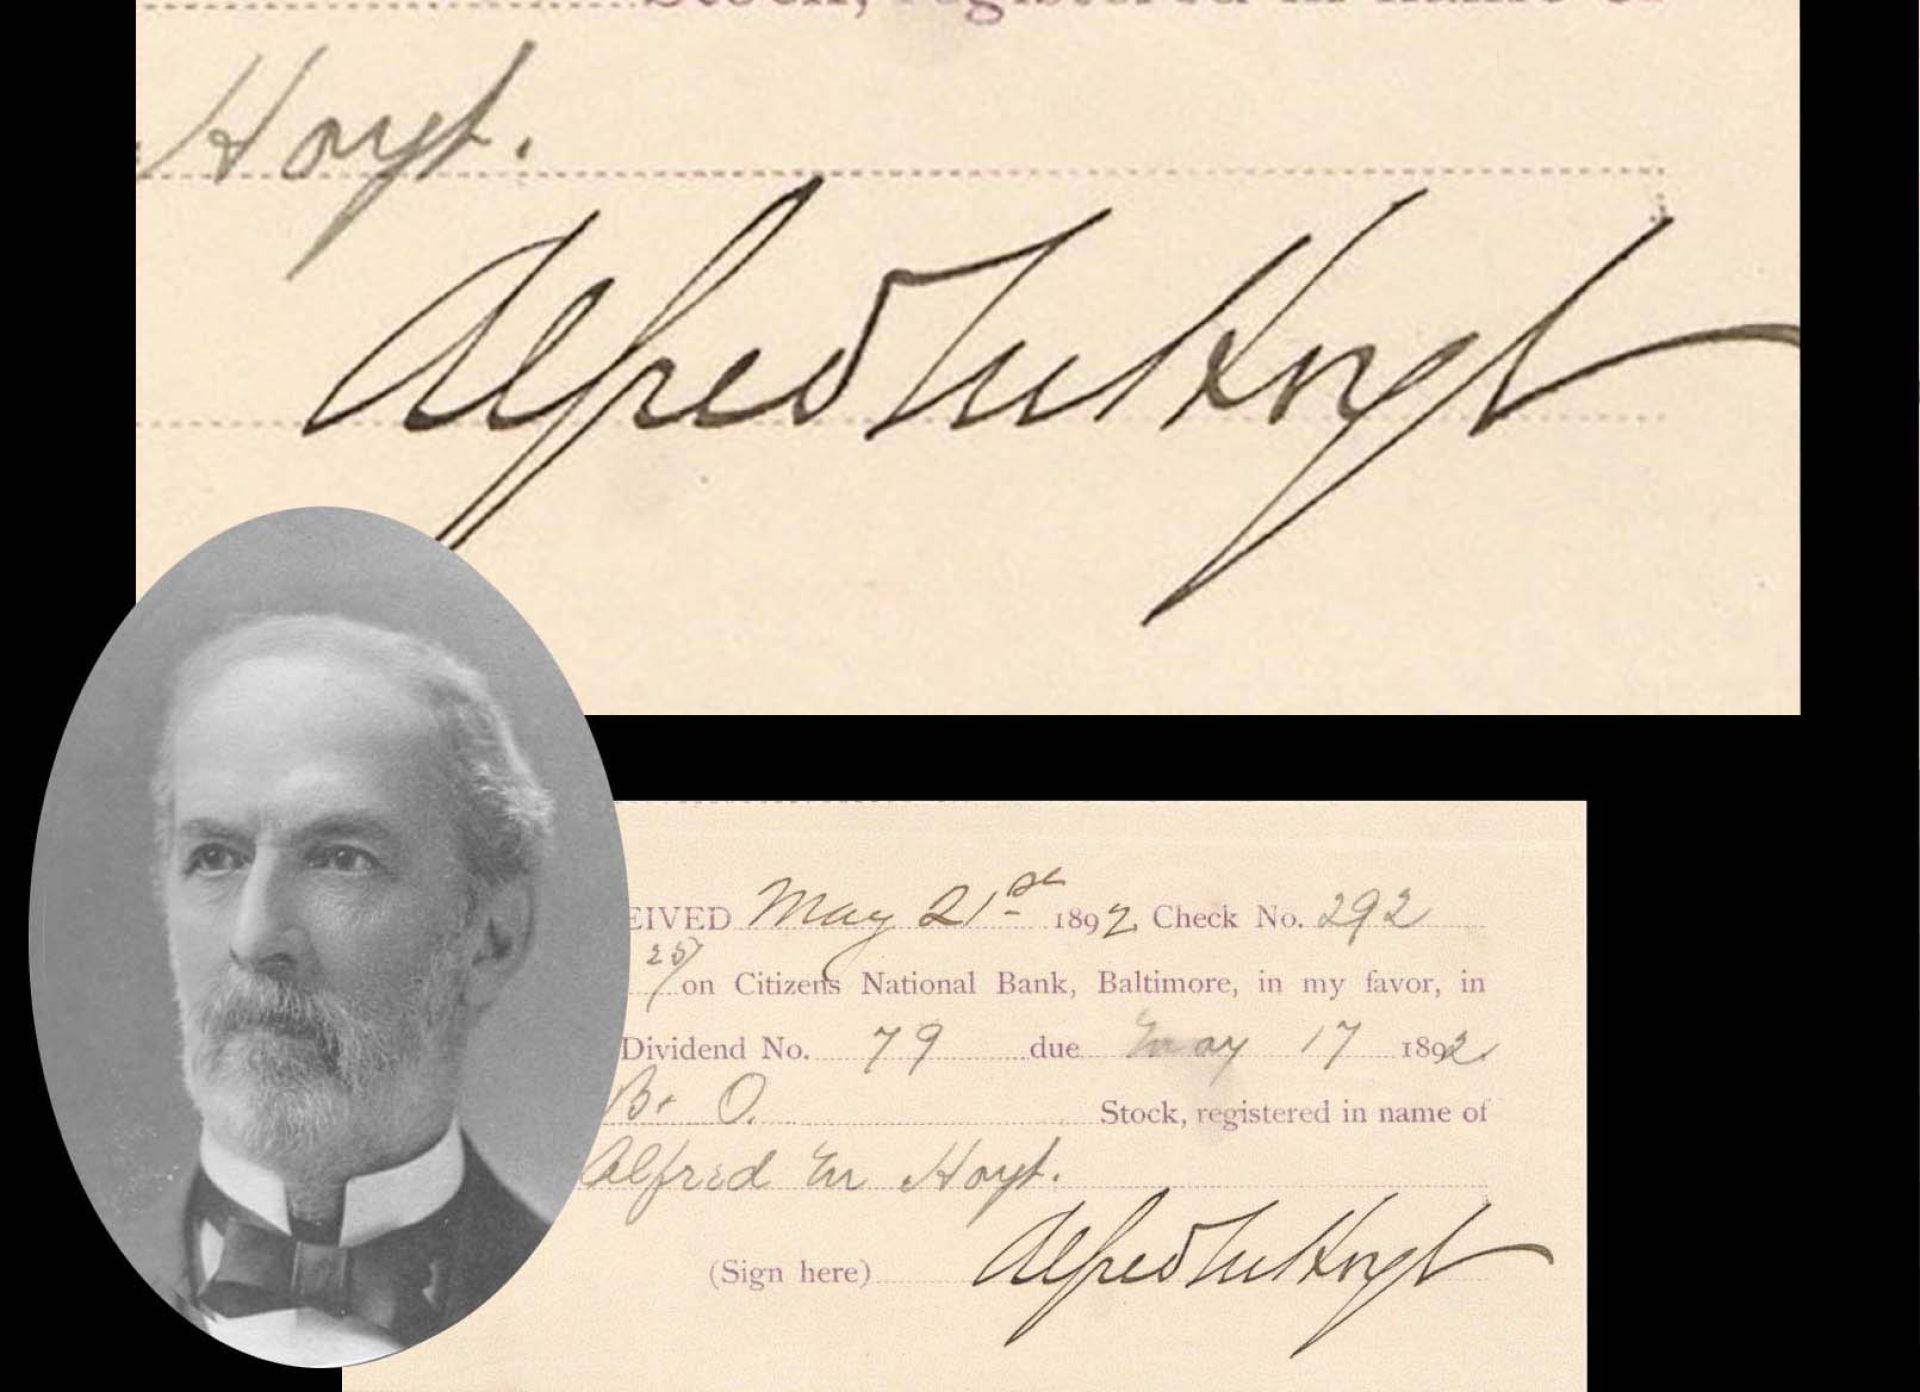 Stock, registered in name of
Hoyt.
Alfred M Hoyt
EIVED May 21st 1892 Check No. 292
25/ on Citizens National Bank, Baltimore, in my favor, in
Dividend No. 79 due May 17 1892.
B & O. Stock, registered in name of
Alfred M Hoyt.
(Sign here) Alfred M Hoyt